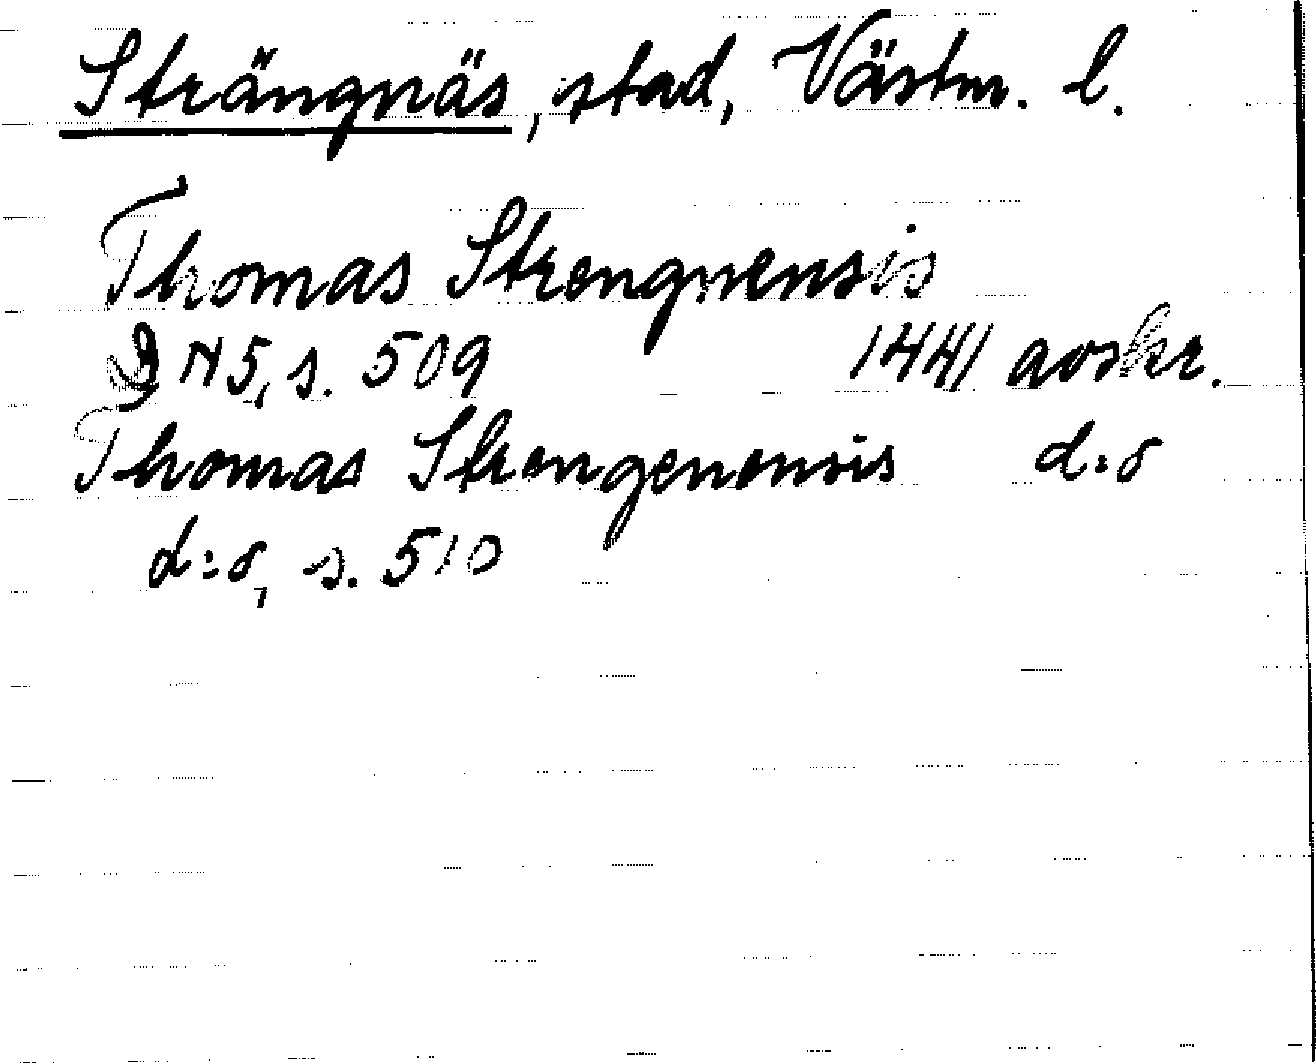 Strängnäs, stad, Västm. l.
Thomas Strengnensis
DN 5, s. 509 1441 avskr.
Thomas Strengenensis d:o
d:o, s. 510